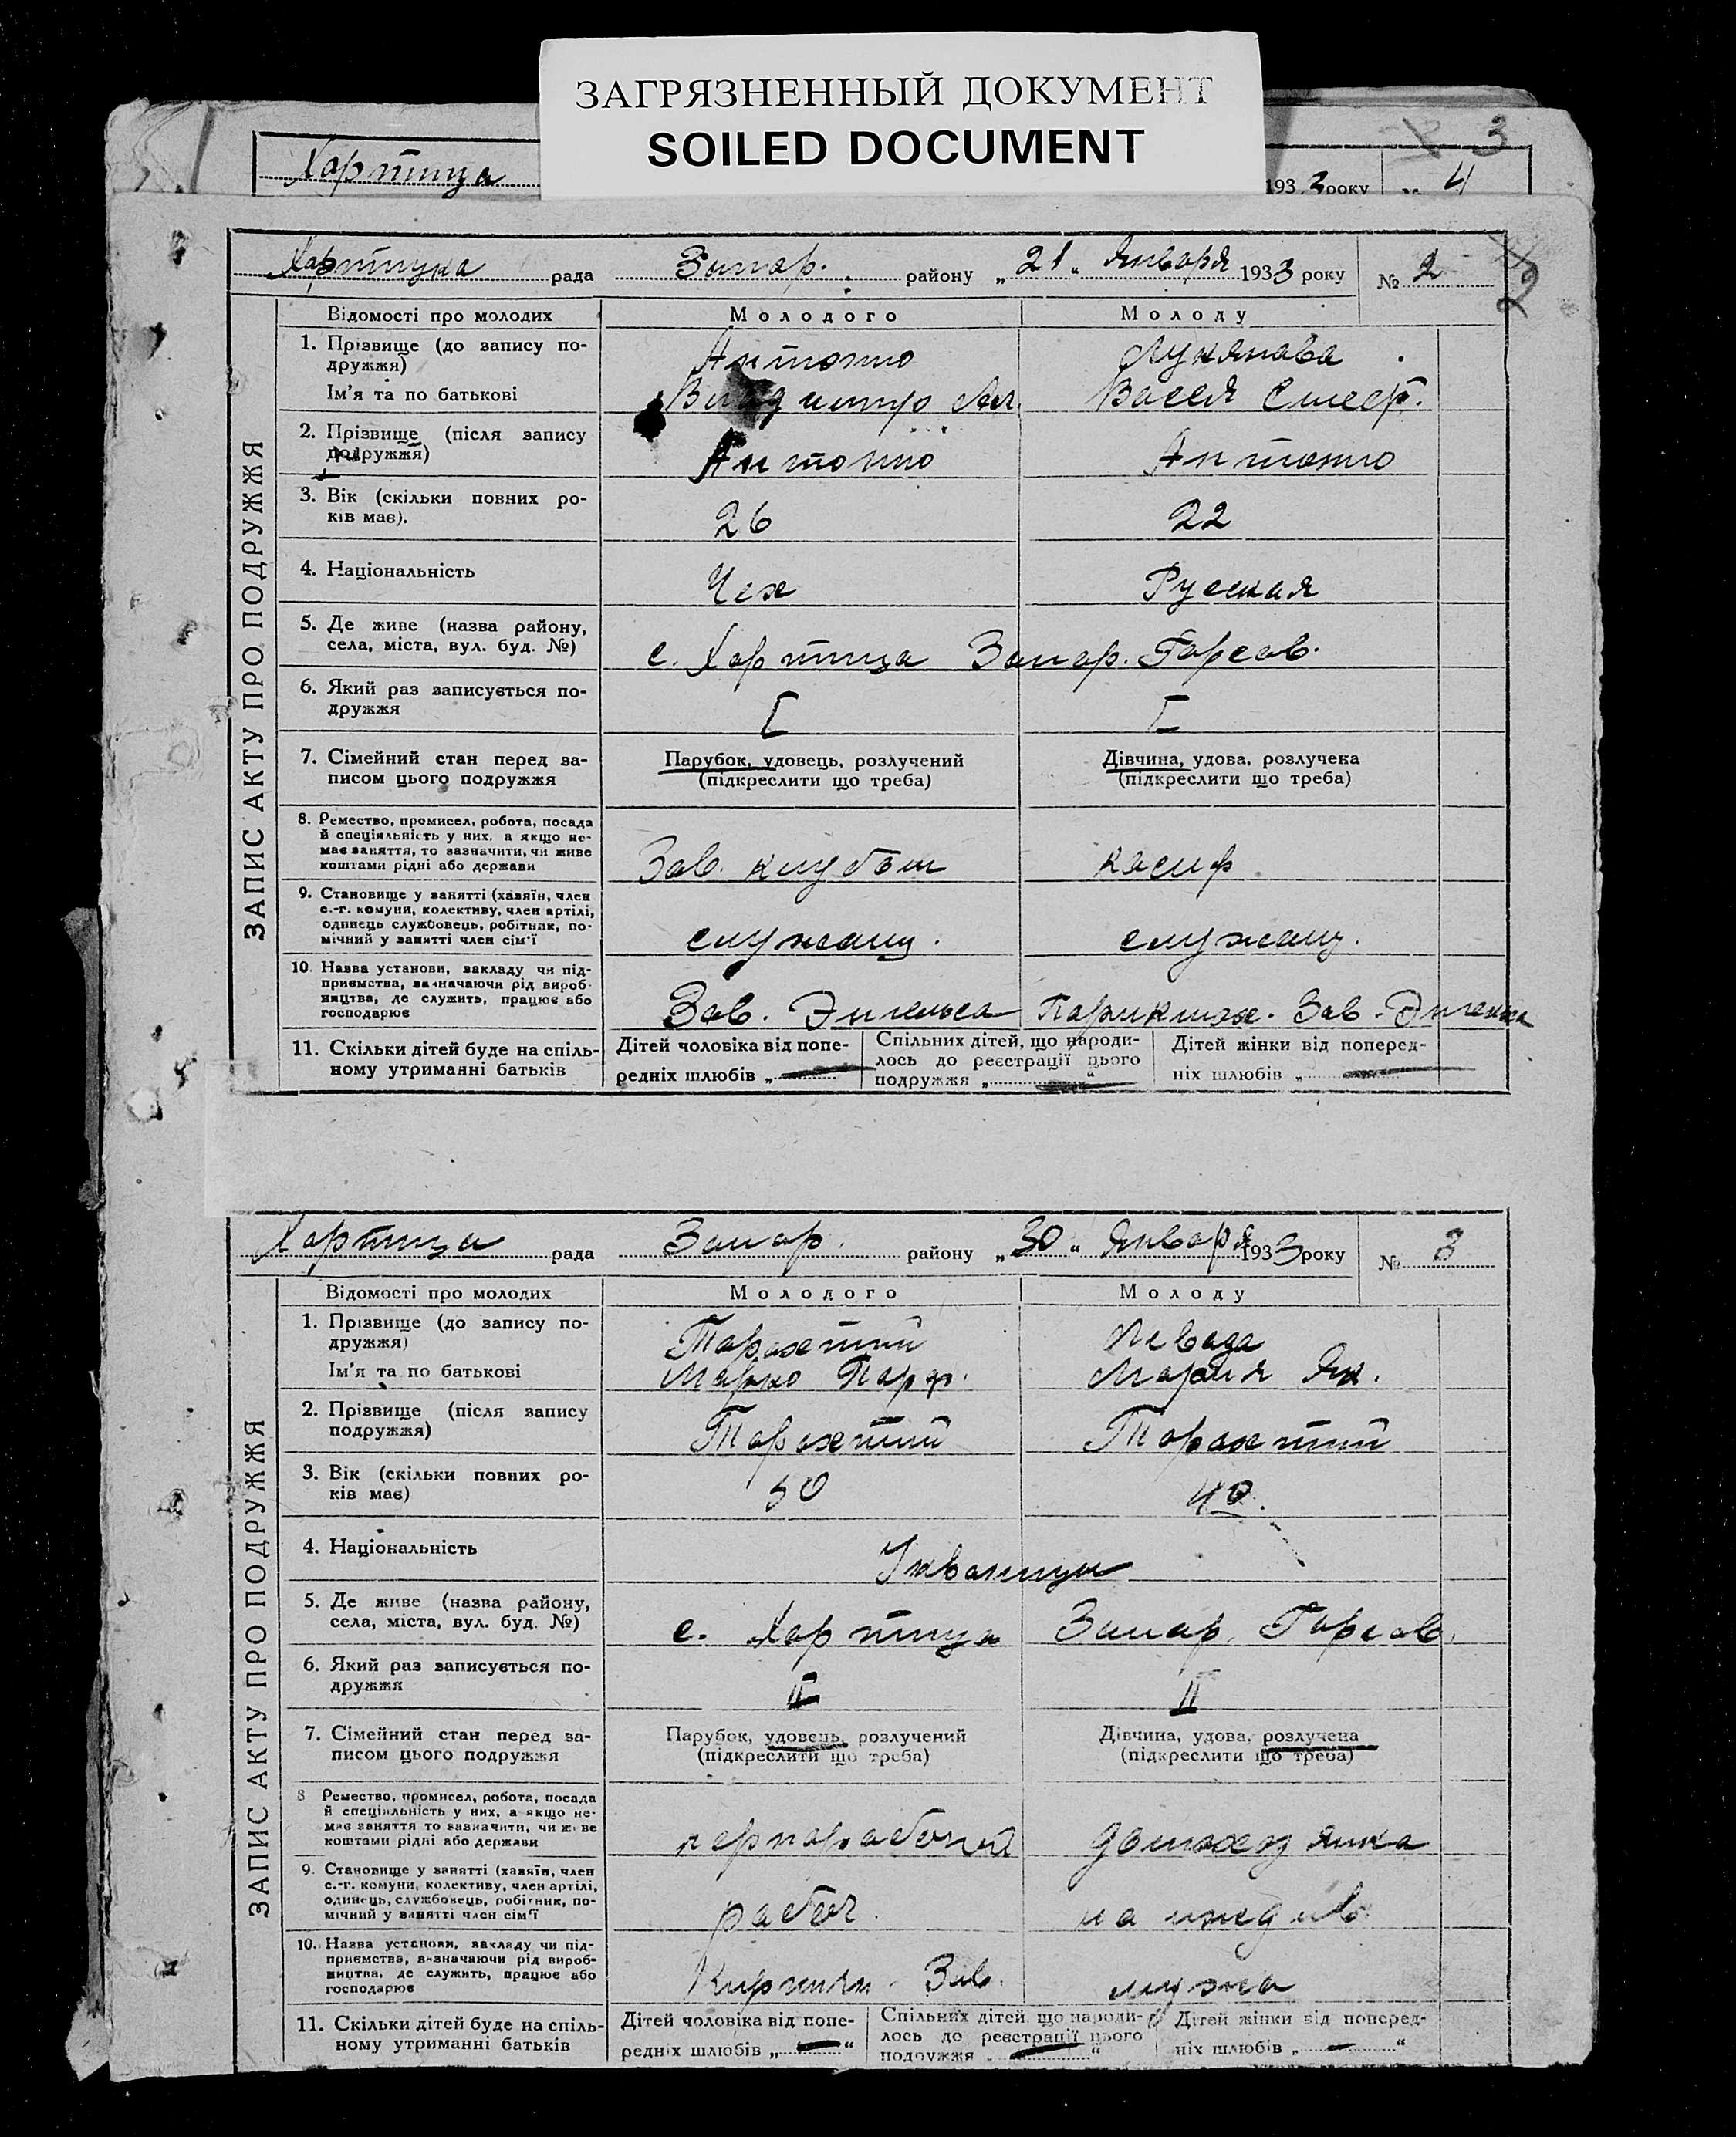 ЗАГРЯЗНЕННЫЙ ДОКУМЕНТ
SOILED DOCUMENT
3
Хортица 1933 року 4
Хортица рада Запор. району „21“ Января 1933 року № 2
2
ЗАПИС АКТУ ПРО ПОДРУЖЖЯ
Відомості про молодих Молодого Молоду
1. Прізвище (до запису по- Антонио Лукянова
дружжя)
Ім'я та по батькові
2. Прізвище (після запису
подружжя) Антонио Антонио
3. Вік (скільки повних ро-
ків має). 26 22
4. Національність Чех Руская
5. Де живе (назва району,
села, міста, вул. буд. №) с. Хортица Запор. Горсов.
6. Який раз записується по-
дружжя I I
7. Сімейний стан перед за- Парубок, удовець, розлучений Дівчина, удова, розлучена
писом цього подружжя (підкреслити що треба) (підкреслити що треба)
8. Ремество, промисел, робота, посада
й спеціяльність у них, а якщо не-
має заняття, то зазначити, чи живе
коштами рідні або держави Зав. клубом касир
9. Становище у занятті (хазяїн, член
с.-г. комуни, колективу, член артілі,
одинець службовець, робітник, по-
мічний у занятті член сім'ї служащ. служащ.
10. Назва установи, закладу чи під-
приємства, зазначаючи рід вироб-
ництва, де служить, працює або
господарює Зав. Энгельса Парикмах. Зав. Энгельса
11. Скільки дітей буде на спіль- Дітей чоловіка від попе- Спільних дітей, що народи- Дітей жінки від поперед-
ному утриманні батьків редніх шлюбів „ лось до реєстрації цього ніх шлюбів „
подружжя „ “
Хортица рада Запор. району „30“ Января 1933 року № 3
ЗАПИС АКТУ ПРО ПОДРУЖЖЯ
Відомості про молодих Молодого Молоду
1. Прізвище (до запису по-
дружжя)
Ім'я та по батькові Марко Парф. Мария Як.
2. Прізвище (після запису
подружжя)
3. Вік (скільки повних ро-
ків має) 50 40
4. Національність
5. Де живе (назва району,
села, міста, вул. буд. №) с. Хортица Запор. Горсов.
6. Який раз записується по-
дружжя II II
7. Сімейний стан перед за- Парубок, удовець, розлучений Дівчина, удова, розлучена
писом цього подружжя (підкреслити що треба) (підкреслити що треба)
8 Ремество, промисел, робота, посада
й спеціяльність у них, а якщо не-
має заняття то зазначити, чи живе
коштами рідні або держави чернорабочий домохозяйка
9. Становище у занятті (хазяїн, член
с.-г. комуни, колективу, член артілі,
одинець, службовець, робітник, по-
мічний у занятті член сім'ї рабоч. на иждив.
10. Назва установи, закладу чи під-
приємства, зазначаючи рід вироб-
ництва, де служить, працює або
господарює Кирпичн. Зав. мужа
11. Скільки дітей буде на спіль- Дітей чоловіка від попе- Спільних дітей, що народи- Дітей жінки від поперед-
ному утриманні батьків редніх шлюбів „ “ лось до реєстрації цього ніх шлюбів „ “
подружжя „ “